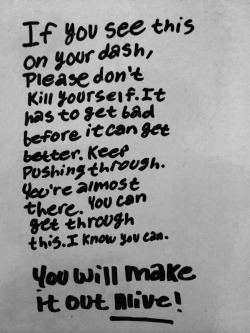 If you see this
on your dash,
Please don't
Kill yourself. It
has to get bad
before it can get
better. Keep
Pushing through.
You're almost
there. You can
get through
this. I know you can.
You will make
it out Alive!